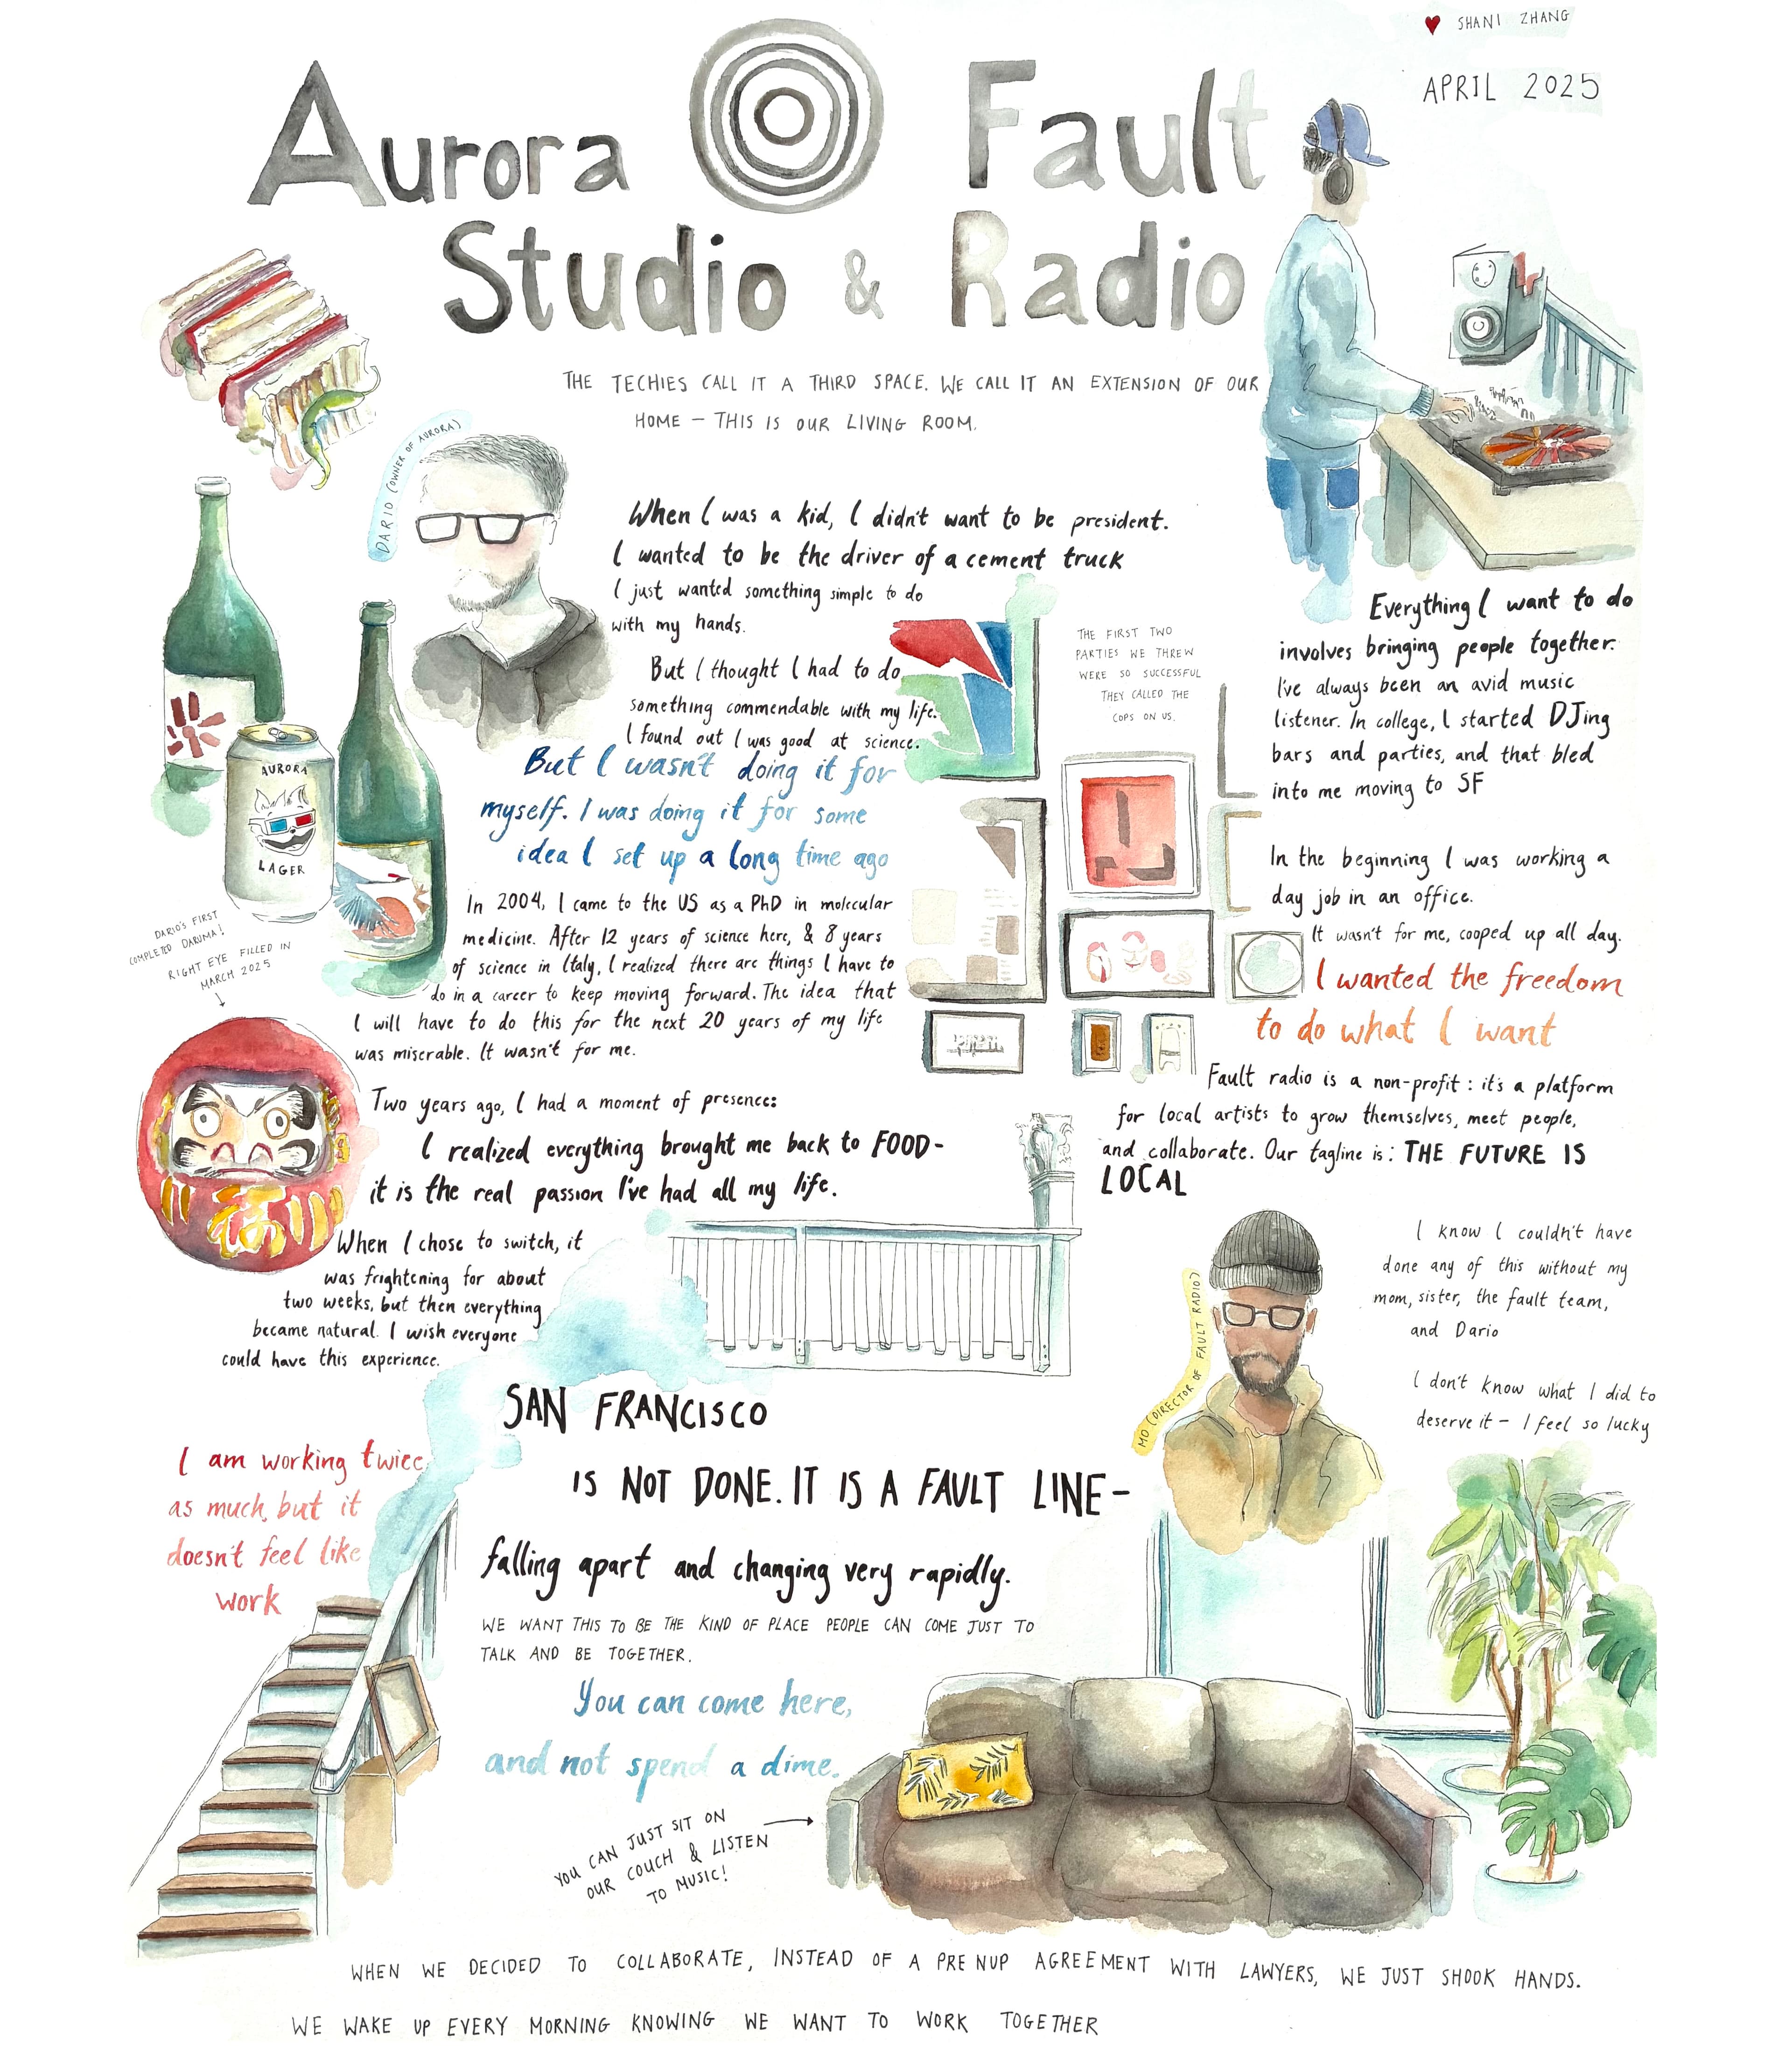 ♥ SHANI ZHANG
APRIL 2025
Aurora Fault
Studio & Radio
THE TECHIES CALL IT A THIRD SPACE. WE CALL IT AN EXTENSION OF OUR
HOME – THIS IS OUR LIVING ROOM.
DARIO (OWNER OF AURORA)
When I was a kid, I didn't want to be president.
I wanted to be the driver of a cement truck
I just wanted something simple to do
with my hands.
But I thought I had to do
something commendable with my life.
I found out I was good at science.
But I wasn't doing it for
myself. I was doing it for some
idea I set up a long time ago
In 2004, I came to the US as a PhD in molecular
medicine. After 12 years of science here, & 8 years
of science in Italy, I realized there are things I have to
do in a career to keep moving forward. The idea that
I will have to do this for the next 20 years of my life
was miserable. It wasn't for me.
AURORA
LAGER
DARIO'S FIRST
COMPLETED DARUMA!
RIGHT EYE FILLED IN
MARCH 2025
Two years ago, I had a moment of presence:
I realized everything brought me back to FOOD–
it is the real passion I've had all my life.
When I chose to switch, it
was frightening for about
two weeks, but then everything
became natural. I wish everyone
could have this experience.
I am working twice
as much, but it
doesn't feel like
work
THE FIRST TWO
PARTIES WE THREW
WERE SO SUCCESSFUL
THEY CALLED THE
COPS ON US.
Everything I want to do
involves bringing people together.
I've always been an avid music
listener. In college, I started DJing
bars and parties, and that bled
into me moving to SF
In the beginning I was working a
day job in an office.
It wasn't for me, cooped up all day.
I wanted the freedom
to do what I want
Fault radio is a non-profit: it's a platform
for local artists to grow themselves, meet people,
and collaborate. Our tagline is: THE FUTURE IS
LOCAL
MO (DIRECTOR OF FAULT RADIO)
I know I couldn't have
done any of this without my
mom, sister, the fault team,
and Dario
I don't know what I did to
deserve it – I feel so lucky
SAN FRANCISCO
IS NOT DONE. IT IS A FAULT LINE–
falling apart and changing very rapidly.
WE WANT THIS TO BE THE KIND OF PLACE PEOPLE CAN COME JUST TO
TALK AND BE TOGETHER.
You can come here,
and not spend a dime.
YOU CAN JUST SIT ON
OUR COUCH & LISTEN
TO MUSIC!
WHEN WE DECIDED TO COLLABORATE, INSTEAD OF A PRENUP AGREEMENT WITH LAWYERS, WE JUST SHOOK HANDS.
WE WAKE UP EVERY MORNING KNOWING WE WANT TO WORK TOGETHER